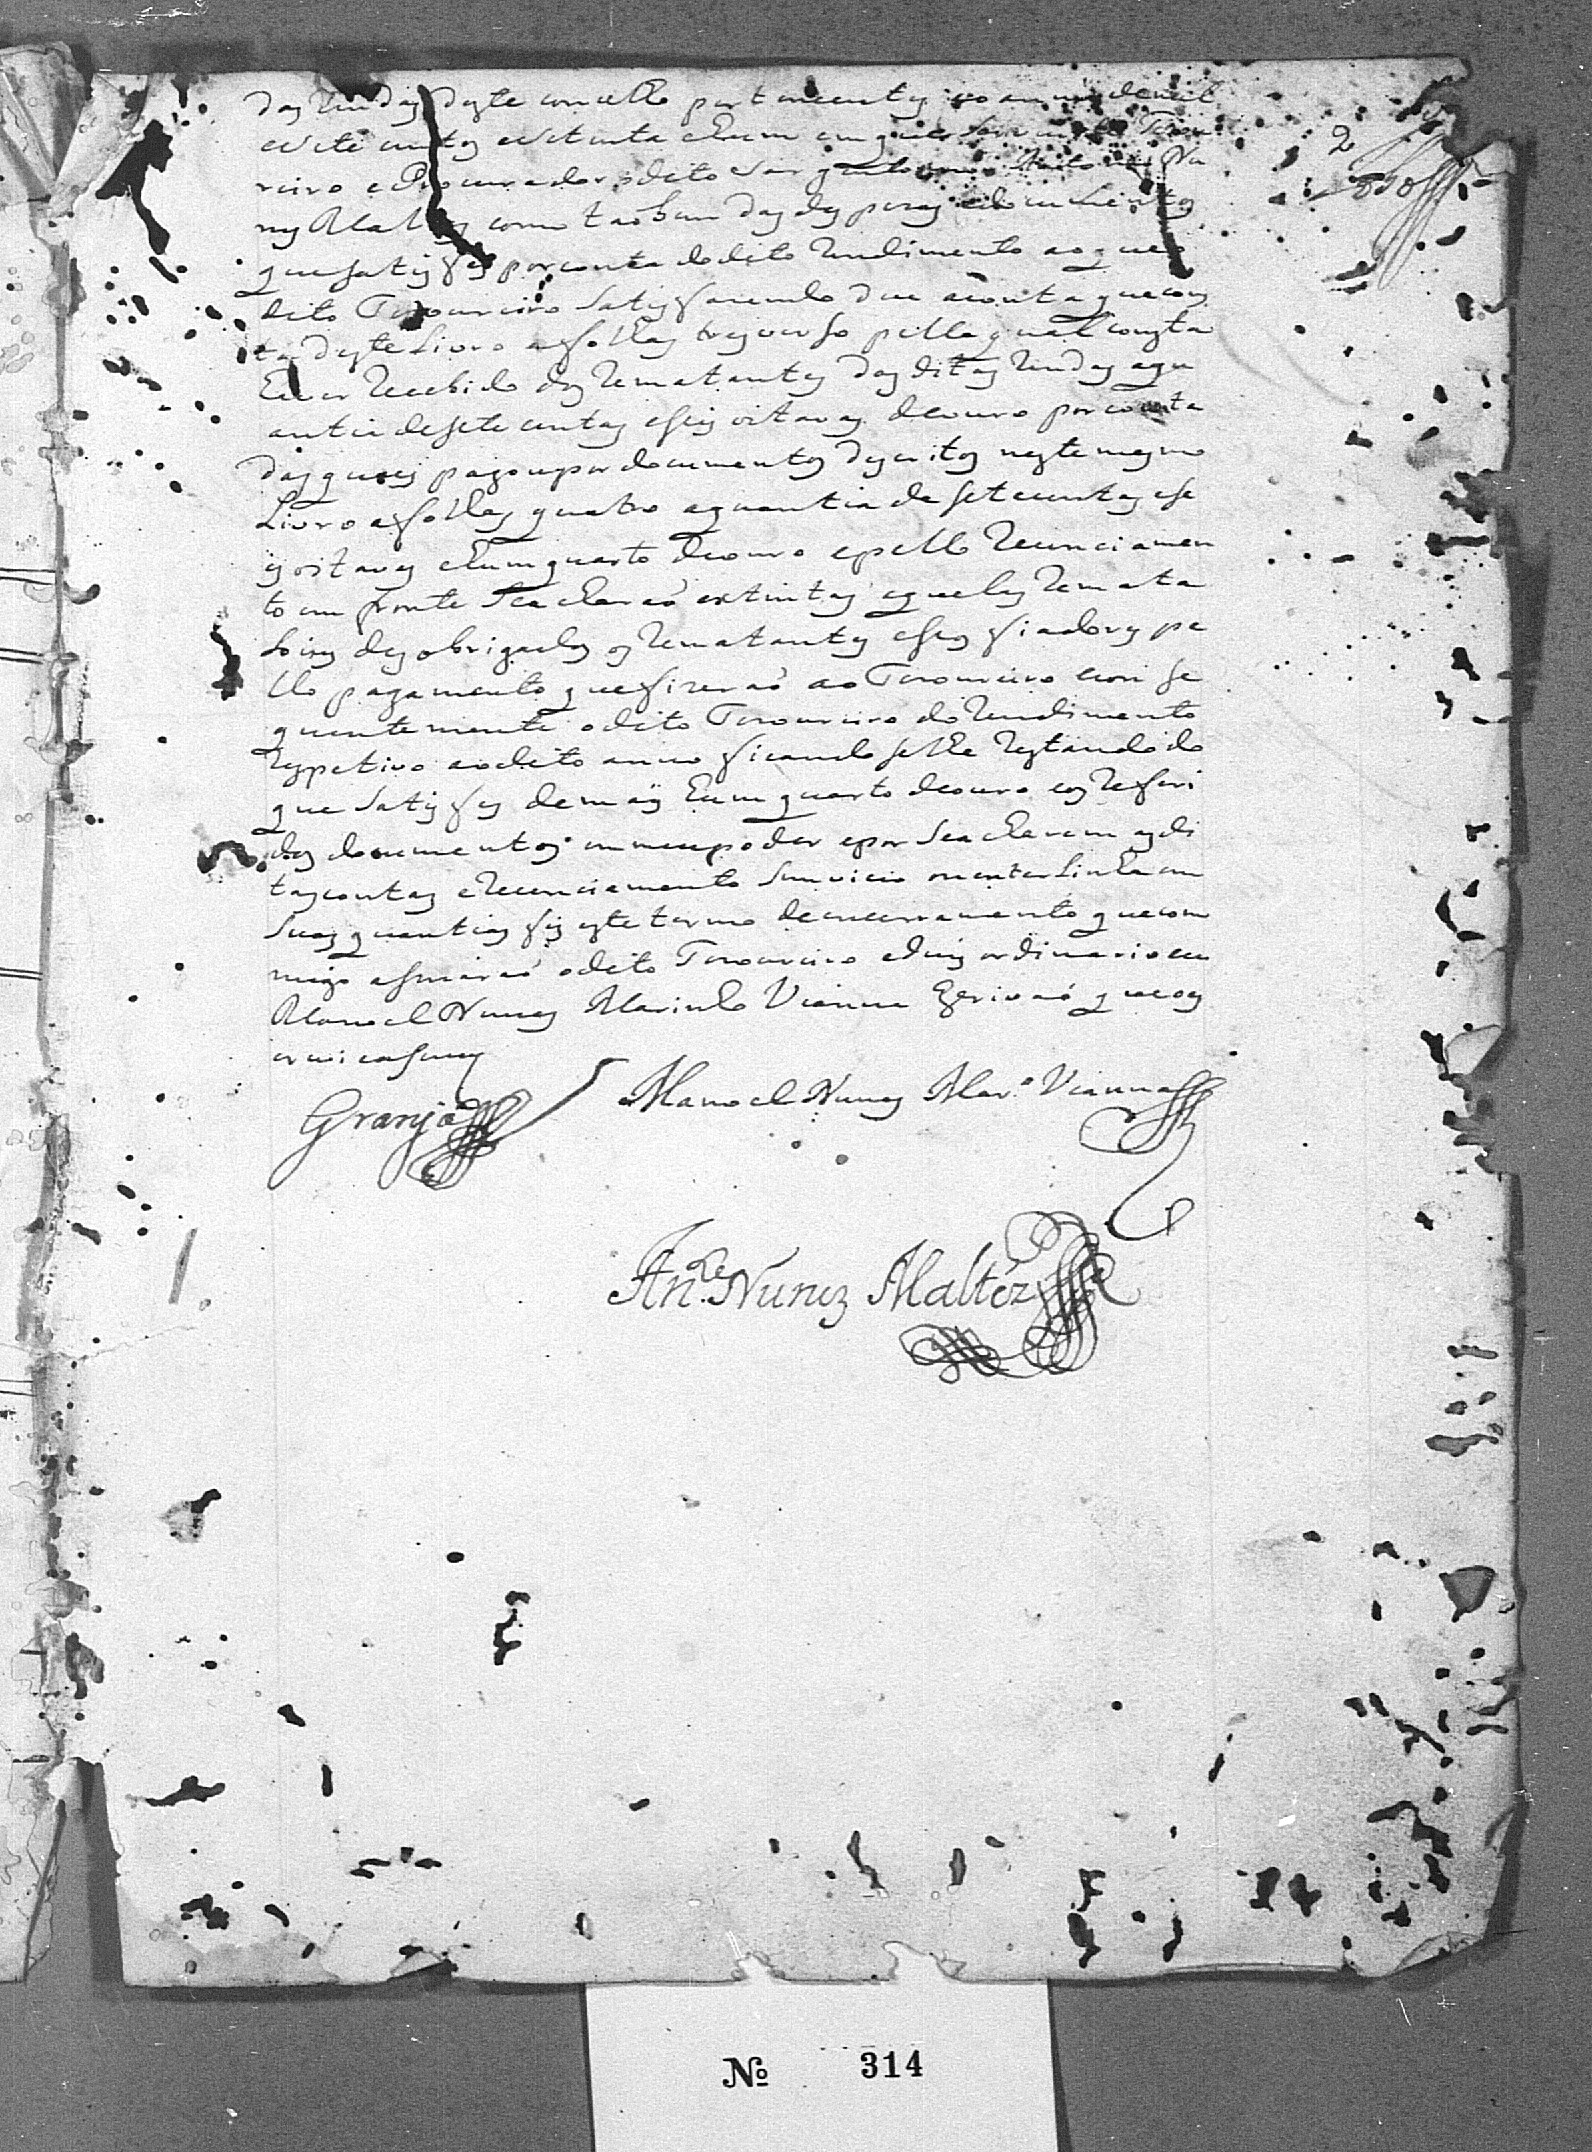 das Rendas deste concelho pertencentes ao anno de mil
e sete centos e oitenta e hum em que servio de Tesou
reiro e Procurador o dito Sargento mor Antonio Nu
nes Maltez como tambem das despezas e documentos
que satisfes por conta do dito rendimento ao que o
dito Tesoureiro satisfazendo deu a conta que cons
ta deste Livro a folhas tres verso pella qual consta
haver Recebido dos Rematantes das ditas Rendas a qu
antia de sete centas e seis oitavas de ouro por conta
das quais pagou por documentos descritos neste mesmo
Livro a folhas quatro a quantia de setecentas e se
is oitavas e hum quarto de ouro e pello Recenciamen
to em fronte se acharaõ extintas aquelas Remata
soins desobrigados os Rematantes e seus fiadores pe
llo pagamento que fizeraõ ao Tesoureiro e con se
quente mente o dito Tesoureiro do Rendimento
respetivo ao dito anno ficando se lhe restando do
que satisfes de mais hum quarto de ouro e os Referi
dos documentos em meu poder e por se acharem as di
tas contas e Recenciamento sem vicio ou entre linha em
suas quantias fis este termo de encerramento que com
migo asinaraõ o dito Tesoureiro e Juis ordinario eu
Manoel Nunes Marinho Vianna Escrivaõ que o es
crevi e asiney
Granja Manoel Nunes Mar.º Vianna
An.to Nunez Maltez
2
Nº 314